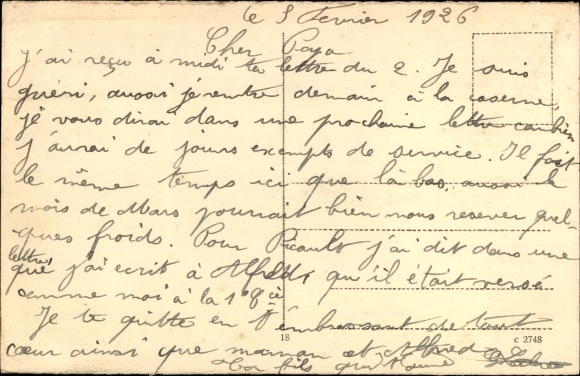 le 3 Fevrier 1926
Cher Papa
J'ai reçu à midi ta lettre du 2. Je suis
guéri, aussi je rentre demain à la caserne,
je vous dirai dans une prochaine lettre combien
j'aurai de jours exempts de service. Il fait
le même temps ici que là bas, aussi le
mois de Mars pourrait bien nous reserver quel-
ques froids. Pour Ricault j'ai dit dans une
lettre que j'ai ecrit à Alfred, qu'il était versé
comme moi à la 18e Cie
Je te quitte en t'embrassant de tout
18
c 2748
cœur ainsi que maman et Alfred
Ton fils qui t'aime